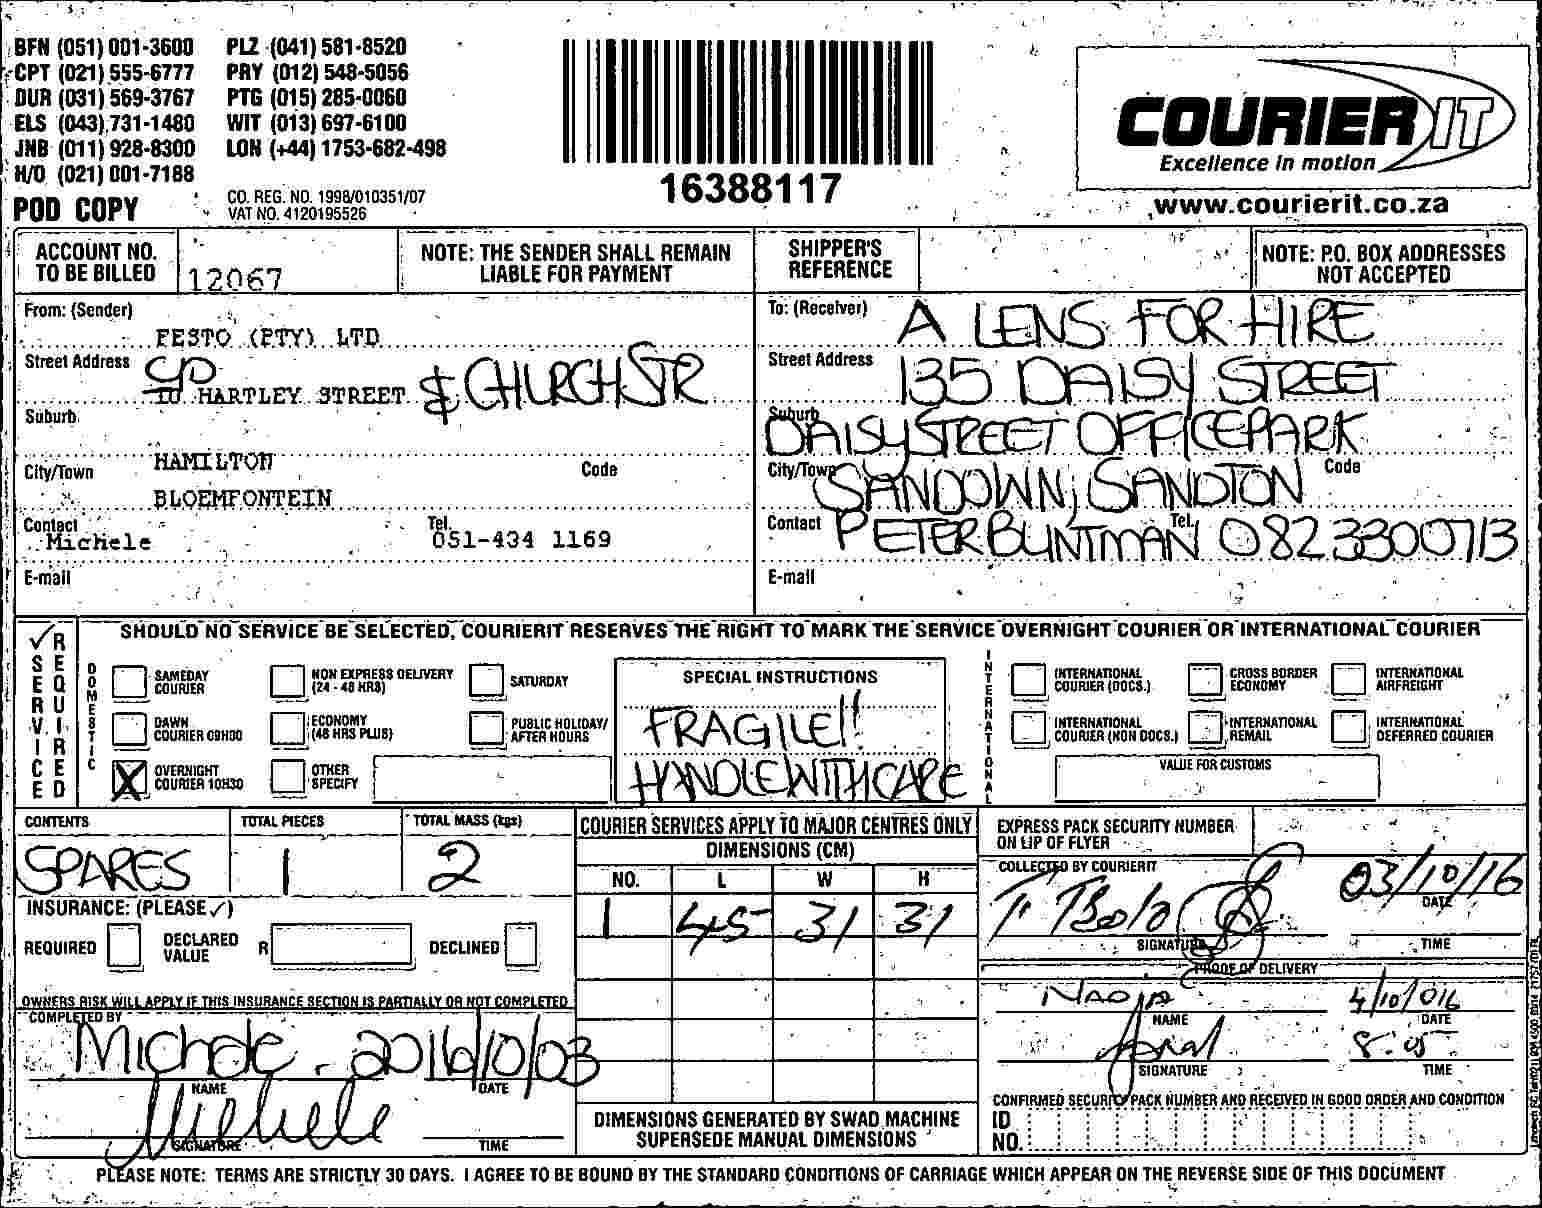 BFN (051) 001-3600 PLZ (041) 581-8520
CPT (021) 555-6777 PRY (012) 548-5056
DUR (031) 569-3767 PTG (015) 285-0060
ELS (043) 731-1480 WIT (013) 697-6100
JNB (011) 928-8300 LON (+44) 1753-682-498
H/O (021) 001-7188
POD COPY
CO. REG. NO. 1998/010351/07
VAT NO. 4120195526
16388117
COURIER IT
Excellence in motion
www.courierit.co.za
ACCOUNT NO. TO BE BILLED 12067
NOTE: THE SENDER SHALL REMAIN LIABLE FOR PAYMENT
SHIPPER'S REFERENCE
NOTE: P.O. BOX ADDRESSES NOT ACCEPTED
From: (Sender)
FESTO (PTY) LTD
Street Address
10 HARTLEY STREET & CHURCH STR
Suburb
HAMILTON
City/Town Code
BLOEMFONTEIN
Contact Michele Tel. 051-434 1169
E-mail
To: (Receiver) A LENS FOR HIRE
Street Address 135 DAISY STREET
Suburb DAISY STREET OFFICE PARK
City/Town SANDOWN, SANDTON Code
Contact PETER BUNTMAN Tel. 082 3300713
E-mail
✓ SERVICE REQUIRED
SHOULD NO SERVICE BE SELECTED, COURIERIT RESERVES THE RIGHT TO MARK THE SERVICE OVERNIGHT COURIER OR INTERNATIONAL COURIER
DOMESTIC
SAMEDAY COURIER
NON EXPRESS DELIVERY (24 - 48 HRS)
SATURDAY
DAWN COURIER 09H00
ECONOMY (48 HRS PLUS)
PUBLIC HOLIDAY/ AFTER HOURS
X OVERNIGHT COURIER 10H30
OTHER SPECIFY
SPECIAL INSTRUCTIONS
FRAGILE!!
HANDLE WITH CARE
INTERNATIONAL
INTERNATIONAL COURIER (DOCS.)
CROSS BORDER ECONOMY
INTERNATIONAL AIRFREIGHT
INTERNATIONAL COURIER (NON DOCS.)
INTERNATIONAL REMAIL
INTERNATIONAL DEFERRED COURIER
VALUE FOR CUSTOMS
CONTENTS TOTAL PIECES TOTAL MASS (kgs)
SPARES 1 2
INSURANCE: (PLEASE ✓)
REQUIRED DECLARED VALUE R DECLINED
OWNERS RISK WILL APPLY IF THIS INSURANCE SECTION IS PARTIALLY OR NOT COMPLETED
COMPLETED BY
Michele. 2016/10/03
NAME DATE
Michele
SIGNATURE TIME
COURIER SERVICES APPLY TO MAJOR CENTRES ONLY
DIMENSIONS (CM)
NO. L W H
1 45 31 31
DIMENSIONS GENERATED BY SWAD MACHINE SUPERSEDE MANUAL DIMENSIONS
EXPRESS PACK SECURITY NUMBER ON LIP OF FLYER
COLLECTED BY COURIERIT
03/10/16
DATE
SIGNATURE TIME
PROOF OF DELIVERY
4/10/016
NAME DATE
8:05
SIGNATURE TIME
CONFIRMED SECURITY PACK NUMBER AND RECEIVED IN GOOD ORDER AND CONDITION
ID NO.
PLEASE NOTE: TERMS ARE STRICTLY 30 DAYS. I AGREE TO BE BOUND BY THE STANDARD CONDITIONS OF CARRIAGE WHICH APPEAR ON THE REVERSE SIDE OF THIS DOCUMENT